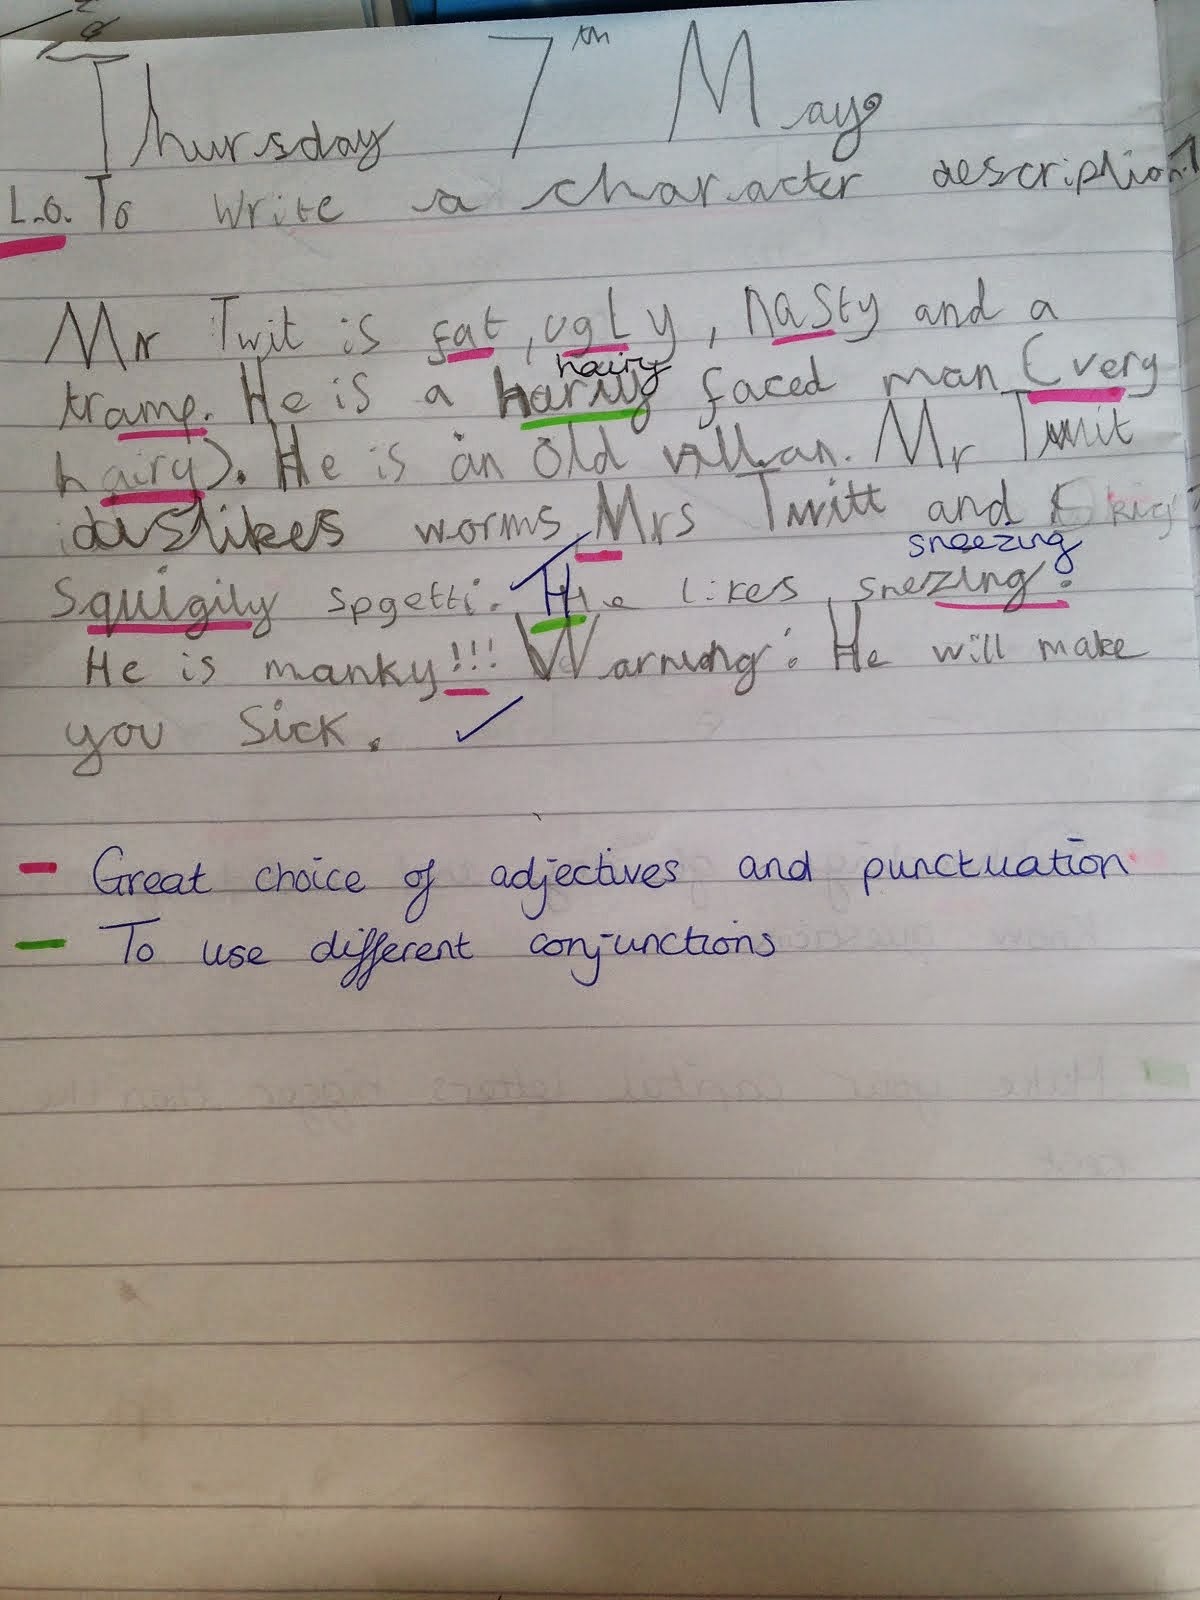 Thursday 7th May
L.O. To write a character description
Mr Twit is fat, ugly, nasty and a
hairy
tramp. He is a hariy faced man (very
hairy). He is an old villan. Mr Twit
dislikes worms Mrs Twitt and
sneezing
Squigily spgetti. He likes snezing.
He is manky!!! Warning: He will make
you Sick.
Great choice of adjectives and punctuation
To use different conjunctions